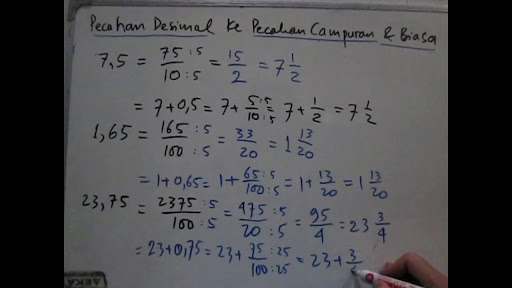 Pecahan Desimal Ke Pecahan Campuran & Biasa
7,5 = 75 :5 / 10 :5 = 15/2 = 7 1/2
= 7 + 0,5 = 7 + 5 :5 / 10 :5 = 7 + 1/2 = 7 1/2
1,65 = 165 :5 / 100 :5 = 33/20 = 1 13/20
= 1 + 0,65 = 1 + 65 :5 / 100 :5 = 1 + 13/20 = 1 13/20
23,75 = 2375 :5 / 100 :5 = 475 :5 / 20 :5 = 95/4 = 23 3/4
= 23 + 0,75 = 23 + 75 :25 / 100 :25 = 23 + 3/